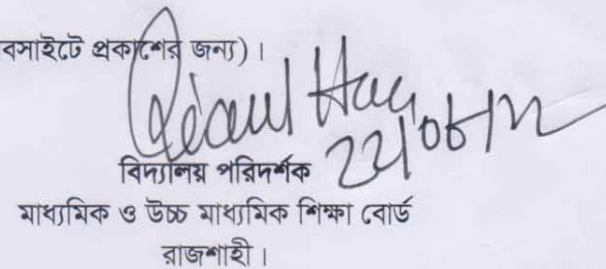 বসাইটে প্রকাশের জন্য)।
বিদ্যালয় পরিদর্শক
মাধ্যমিক ও উচ্চ মাধ্যমিক শিক্ষা বোর্ড
রাজশাহী।